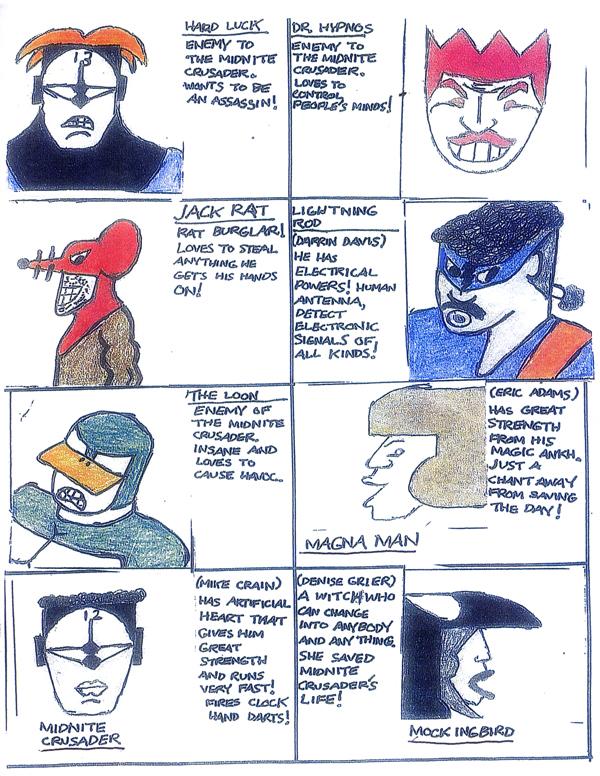 HARD LUCK
ENEMY TO
THE MIDNITE
CRUSADER.
WANTS TO BE
AN ASSASSIN!
13
DR. HYPNOS
ENEMY TO
THE MIDNITE
CRUSADER.
LOVES TO
CONTROL
PEOPLE'S MINDS!
JACK RAT
RAT BURGLAR!
LOVES TO STEAL
ANYTHING HE
GETS HIS HANDS
ON!
LIGHTNING
ROD
(DARRIN DAVIS)
HE HAS
ELECTRICAL
POWERS! HUMAN
ANTENNA,
DETECT
ELECTRONIC
SIGNALS OF
ALL KINDS!
THE LOON
ENEMY OF
THE MIDNITE
CRUSADER.
INSANE AND
LOVES TO
CAUSE HAVOC.
(ERIC ADAMS)
HAS GREAT
STRENGTH
FROM HIS
MAGIC ANKH.
JUST A
CHANT AWAY
FROM SAVING
THE DAY!
MAGNA MAN
12
(MIKE CRAIN)
HAS ARTIFICIAL
HEART THAT
GIVES HIM
GREAT
STRENGTH
AND RUNS
VERY FAST!
FIRES CLOCK
HAND DARTS!
MIDNITE
CRUSADER
(DENISE GRIER)
A WITCH WHO
CAN CHANGE
INTO ANYBODY
AND ANYTHING.
SHE SAVED
MIDNITE
CRUSADER'S
LIFE!
MOCKINGBIRD